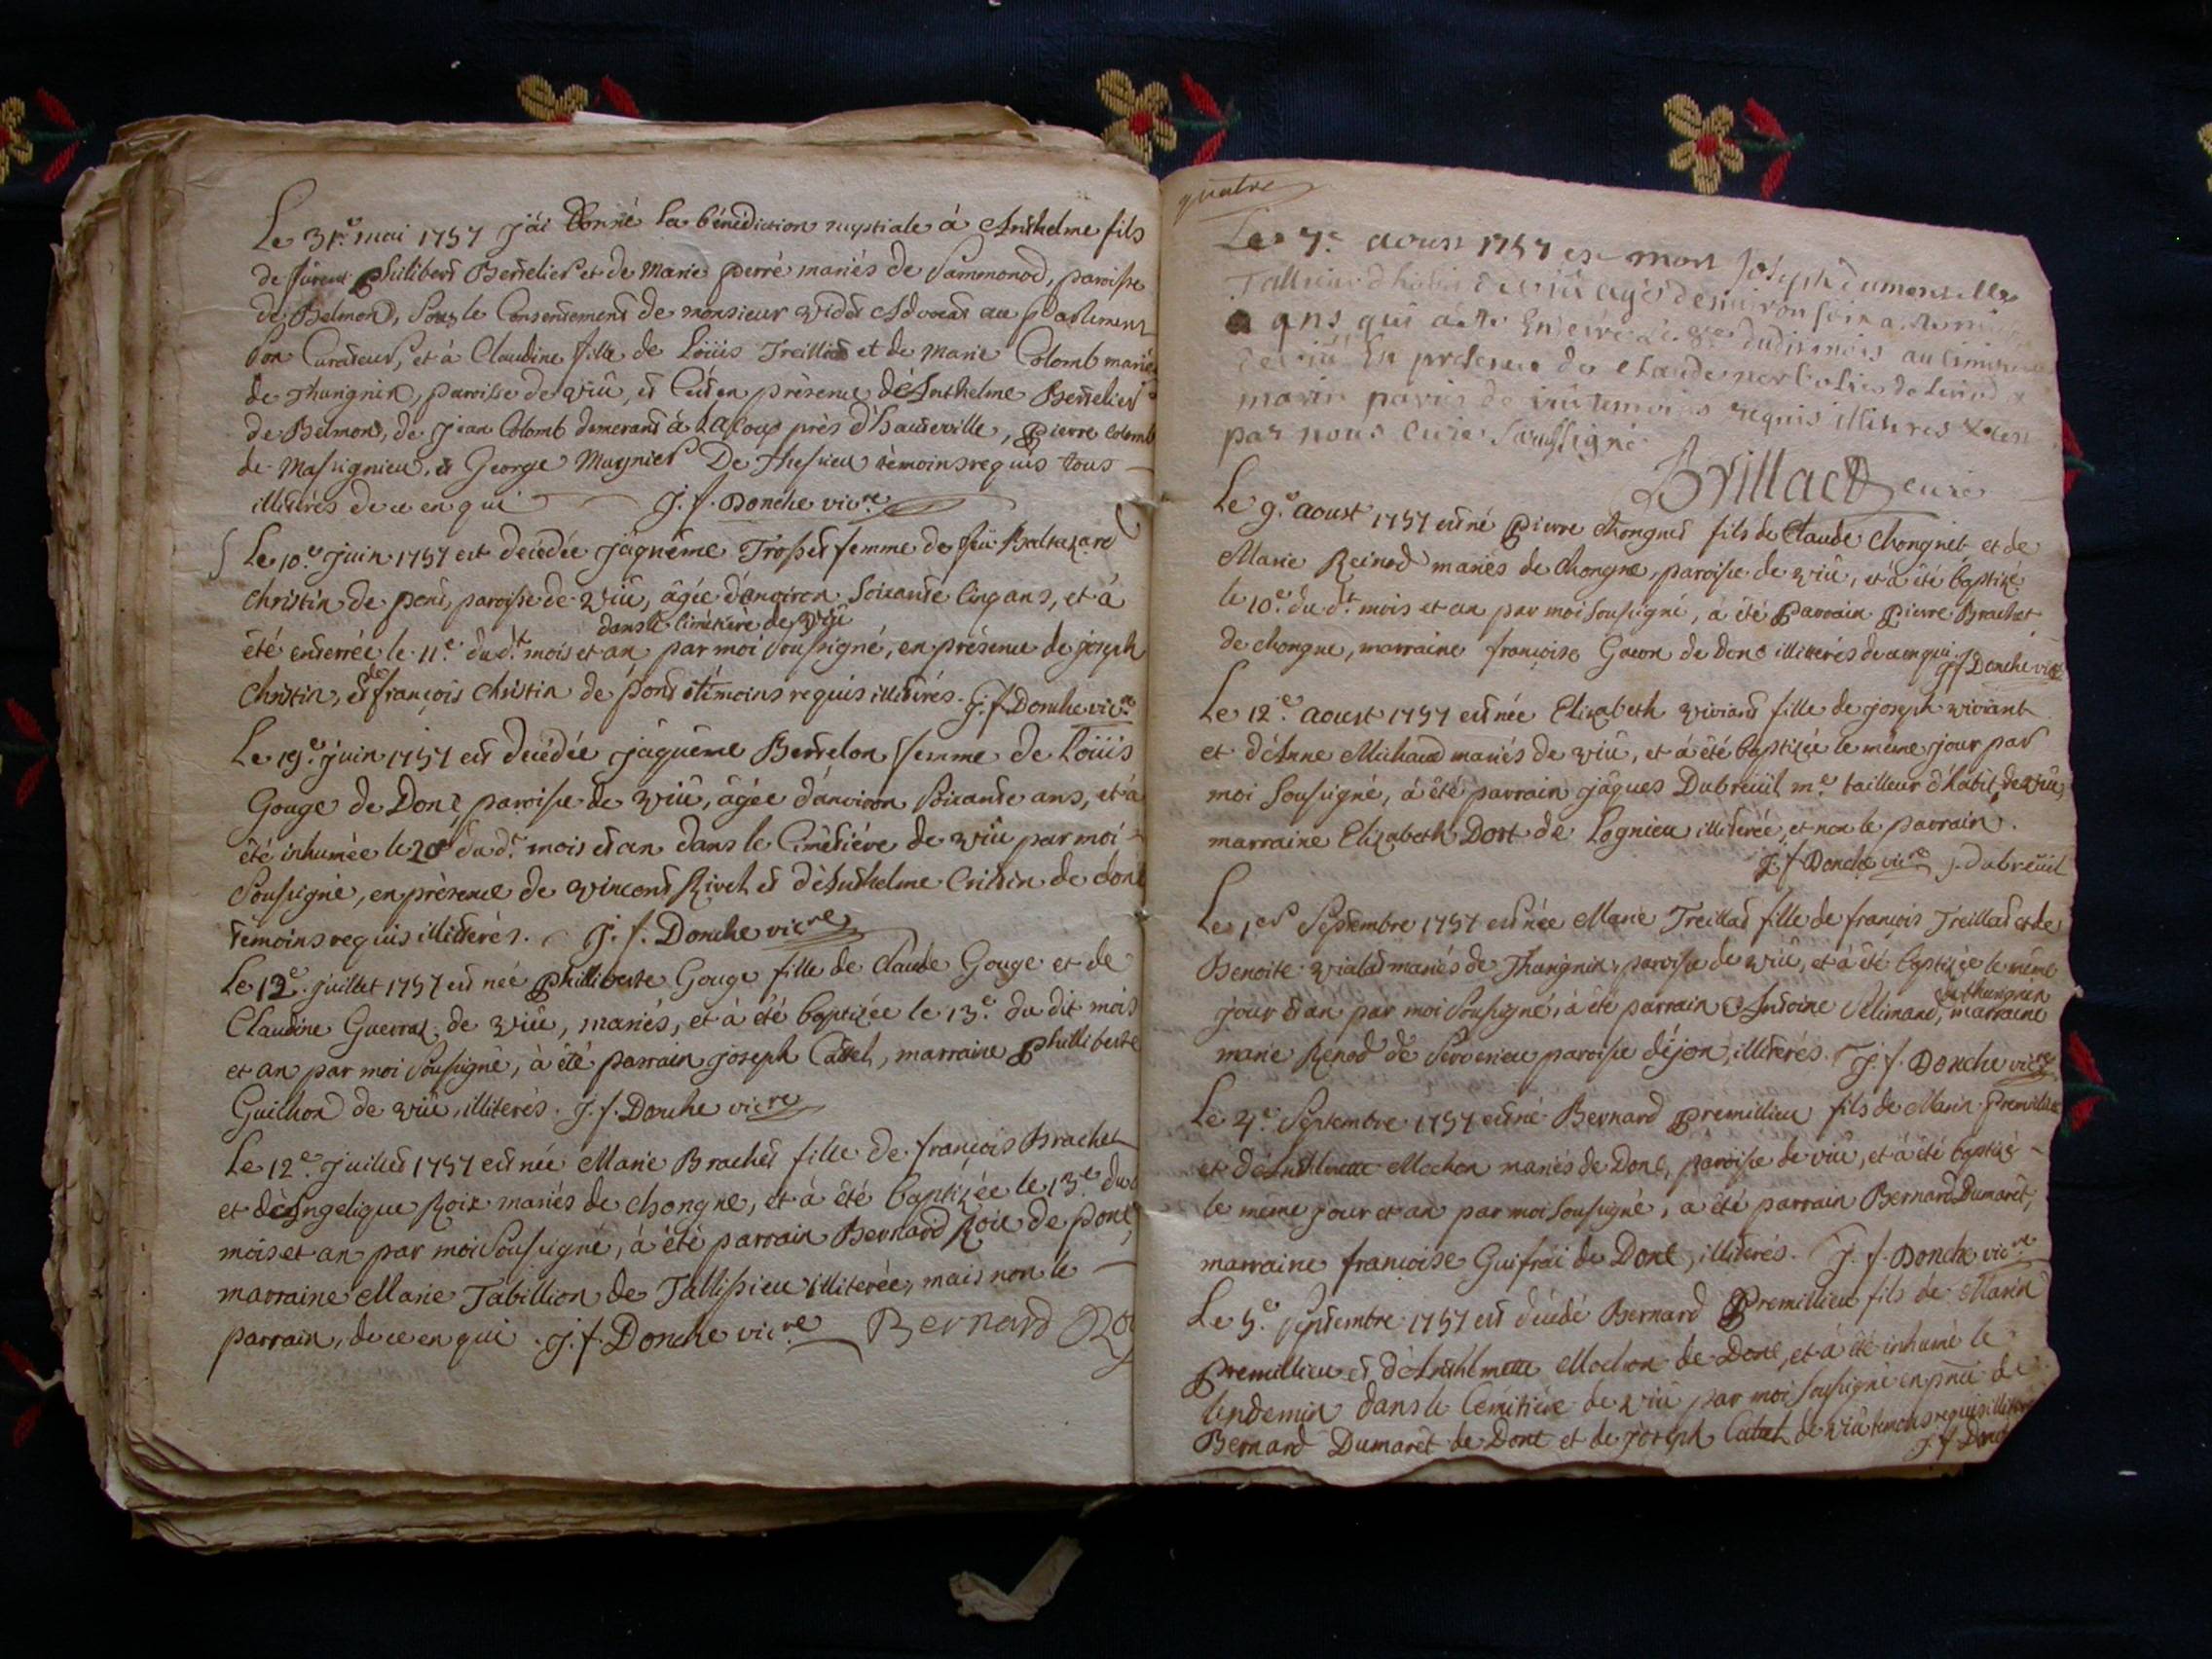 Le 31e mai 1757 j'ai donné la bénédiction nuptiale à Anthelme fils
de furent philibert Berrelier et de Marie perré mariés de Sammonod, paroisse
de Belmond, Sous le Consentement de monsieur Advocat au Parlement
son Curateur, et à Claudine fille de Loüis Treillat et de Marie Colomb mariés
de Thurignin, paroisse de viû, et C'est en présence d'Anthelme Berrelier
de Belmond, de jean Colomb demerant à Lacoup près d'hauteville, pierre Colomb
de Massignieu, et George Mugnier De Thesieu témoins requis tous
illitérés de ce enquis J. f. Donche vicre
Le 10e juin 1757 est decédée jâquême Trosset femme de feu Baltazard
christin de pont, paroisse de viû, âgée d'environ Soixante Cinq ans, et à
dans le cimétiére de viû
été enterrée le 11e du dt mois et an par moi soussigné, en présence de joseph
de
Christin, et françois christin de pont témoins requis illitérés. J. f. Donche vicre
Le 19e juin 1757 est decédée jâquême Berrelon femme de Loüis
Gouge de Donc, paroisse de viû, âgée d'anviron Soixante ans, et à
été inhumée le 20e du dt mois et an dans le Cimétiére de viû par moi
soussigné, en présence de vincent Rivet et d'Anthelme Critin de donc
témoins requis illitérés. J. f. Donche vicre
Le 12e juillet 1757 est née philliberte Gouge fille de Claude Gouge et de
Claudine Guerraz de viû, mariés, et à été baptizée le 13e du dit mois
et an par moi soussigné, à été parrain joseph Catel, marraine philliberte
Guilhon de viû, illiterés. J. f. Donche vicre
Le 12e juillet 1757 est née Marie Brachet fille de françois Brachet
et d'Angelique Roix mariés de chongne, et à été baptizée le 13e dud
mois et an par moi soussigné, à été parrain Bernard Roix de pont,
marraine Marie Tabillion de Tallissieu illiterée, mais non le
parrain, de ce enquis. J. f. Donche vicre Bernard Roy
quatre
Le 7e aoust 1757 est mort joseph dumarest
d'habit de viû agé d'environ
ans qui a été Enterré Le 8e dudit mois au cimetiere
de viû En presence de claude
marin de viû temoins requis illiteres
par nous curé soussigné
Brillact curé
Le 9e aoust 1757 est né Pierre chongnet fils de Claude chongnet et de
Marie Reinod mariés de chongne, paroisse de viû, et à été baptizé
le 10e du dt mois et an par moi soussigné, à été parrain Pierre Brachet
de chongne, marraine françoise Gacon de Donc illiterés de ce enquis J. f. Donche vicre
Le 12e aoust 1757 est née Elizabeth viviant fille de joseph viviant
et d'Anne Michaud mariés de viû, et à été baptizée le même jour par
moi soussigné, à été parrain jâques Dubreüil me tailleur d'habit de viû,
marraine Elizabeth Dort de Lognieu illiterée, et non le parrain.
J. f. Donche vicre j. dubreüil
Le 1er Septembre 1757 est née Marie Treillat fille de françois Treillat et de
Benoite vialat mariés de Thurignin, paroisse de viû, et à été baptizée le même
de thurignin
jour et an par moi soussigné, à été parrain Antoine Selimand, marraine
marie Renod de Serverieu paroisse d'éjon, illitérés. J. f. Donche vicre
Le 4e Septembre 1757 est né Bernard premillieu fils de Marin premillieu
et d'Anthelmette Mochon mariés de Donc, paroisse de viû, et à été baptizé
le même jour et an par moi soussigné, à été parrain Bernard Dumarêt,
marraine françoise Guifrai de Donc, illitérés. J. f. Donche vicre
Le 5e Septembre 1757 est decédé Bernard Premillieu fils de Marin
premillieu et d'Anthelmette Mochon de Donc, et à été inhumé le
lendemin dans le Cémitiére de viû par moi soussigné en pnce de
Bernard Dumarêt de Donc et de joseph Catel de viû temoins requis illiterés
J. f. Donche